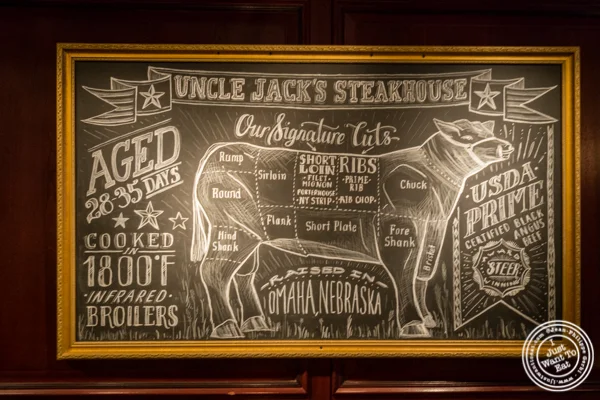 UNCLE JACK'S STEAKHOUSE
Our Signature Cuts
AGED
28-35 DAYS
COOKED
IN
1800°F
INFRARED
BROILERS
Rump
Sirloin
SHORT
LOIN
FILET
MIGNON
PORTERHOUSE
NY STRIP
RIBS
PRIME
RIB
RIB CHOP
Chuck
Round
Flank
Short Plate
Hind
Shank
Fore
Shank
Brisket
RAISED IN
OMAHA, NEBRASKA
USDA
PRIME
CERTIFIED BLACK
ANGUS
BEEF
STEER
I
Just
Want To
Eat